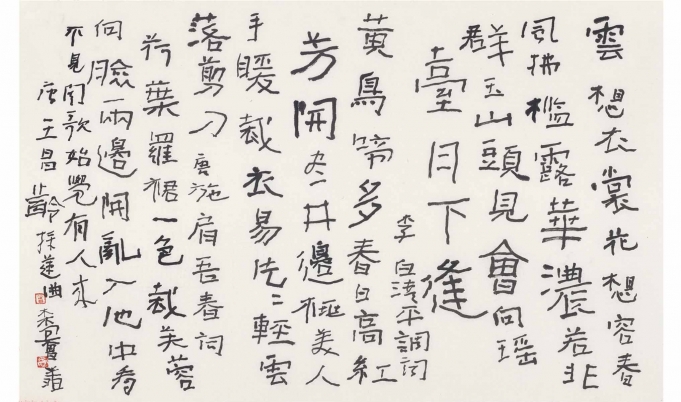 雲想衣裳花想容春
風拂檻露華濃若非
群玉山頭見會向瑤
臺月下逢
李白清平調詞
黃鳥啼多春日高紅
芳開盡井邊桃美人
手暖裁衣易片〻輕雲
落剪刀 唐施肩吾春詞
荷葉羅裙一色裁芙蓉
向臉兩邊開亂入池中看
不見聞歌始覺有人來
唐王昌齡採蓮曲